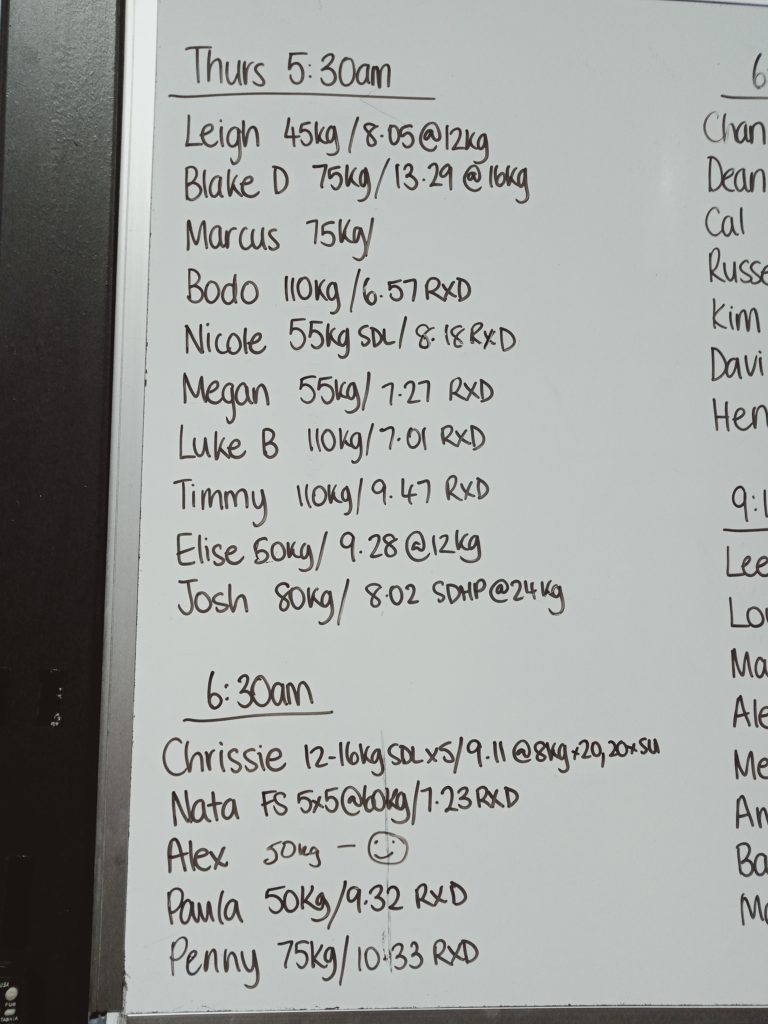 Thurs 5:30am
Leigh 45kg/8.05@12kg
Blake D 75kg/13.29 @16kg
Marcus 75kg/
Bodo 110kg/6.57 RXD
Nicole 55kg SDL/8.18 RXD
Megan 55kg/7.27 RXD
Luke B 110kg/7.01 RXD
Timmy 110kg/9.47 RXD
Elise 50kg/ 9.28 @12kg
Josh 80kg/ 8.02 SDHP@24kg
6:30am
Chrissie 12-16kg SDL x5/9.11@8kg x20,20xSU
Nata FS 5x5@60kg/7.23 RXD
Alex 50kg - ☺
Paula 50kg/9.32 RXD
Penny 75kg/10.33 RXD
6:
Chan
Dean
Cal
Russe
Kim
Davi
Hen
9:1
Lee
Lou
Ma
Ale
Me
An
Ba
Mo